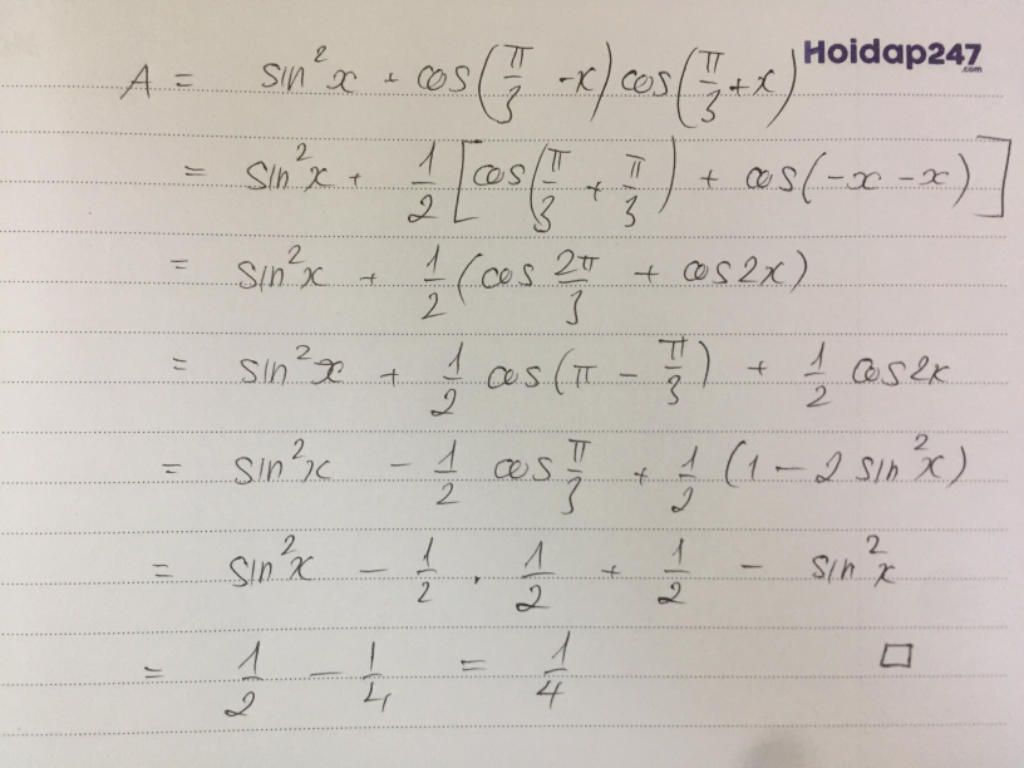 Hoidap247.com
A = sin²x + cos(π/3 -x) cos(π/3 +x)
= sin²x + 1/2 [cos(π/3 + π/3) + cos(-x -x)]
= sin²x + 1/2 (cos 2π/3 + cos2x)
= sin²x + 1/2 cos(π - π/3) + 1/2 cos2x
= sin²x - 1/2 cos π/3 + 1/2 (1 - 2 sin²x)
= sin²x - 1/2 . 1/2 + 1/2 - sin²x
= 1/2 - 1/4 = 1/4 □